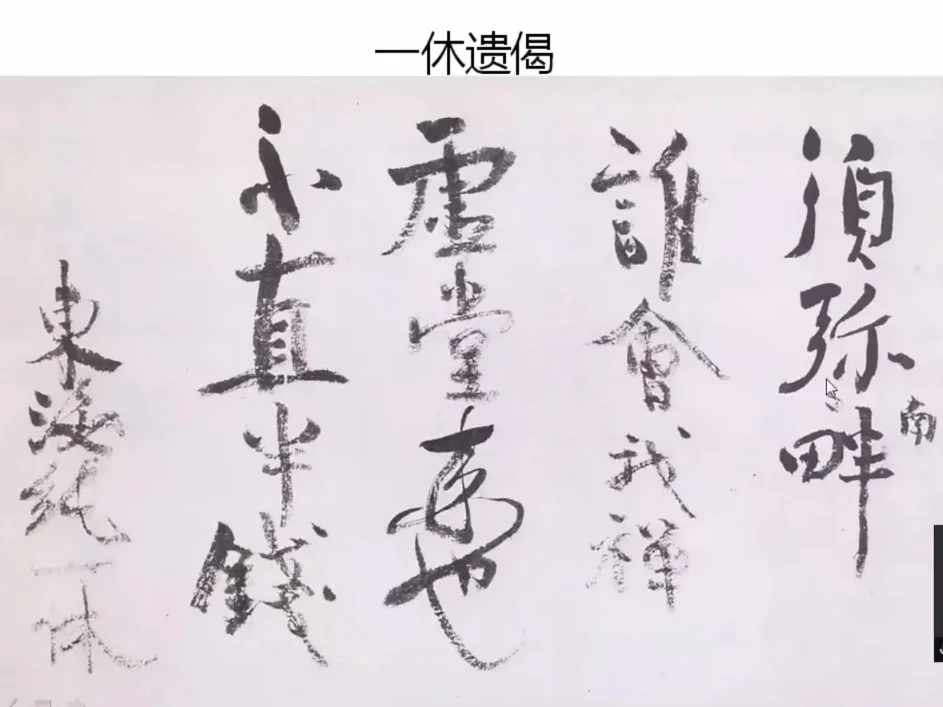 一休遗偈
須弥南畔
誰會我禅
虚堂来也
不直半錢
東海純一休